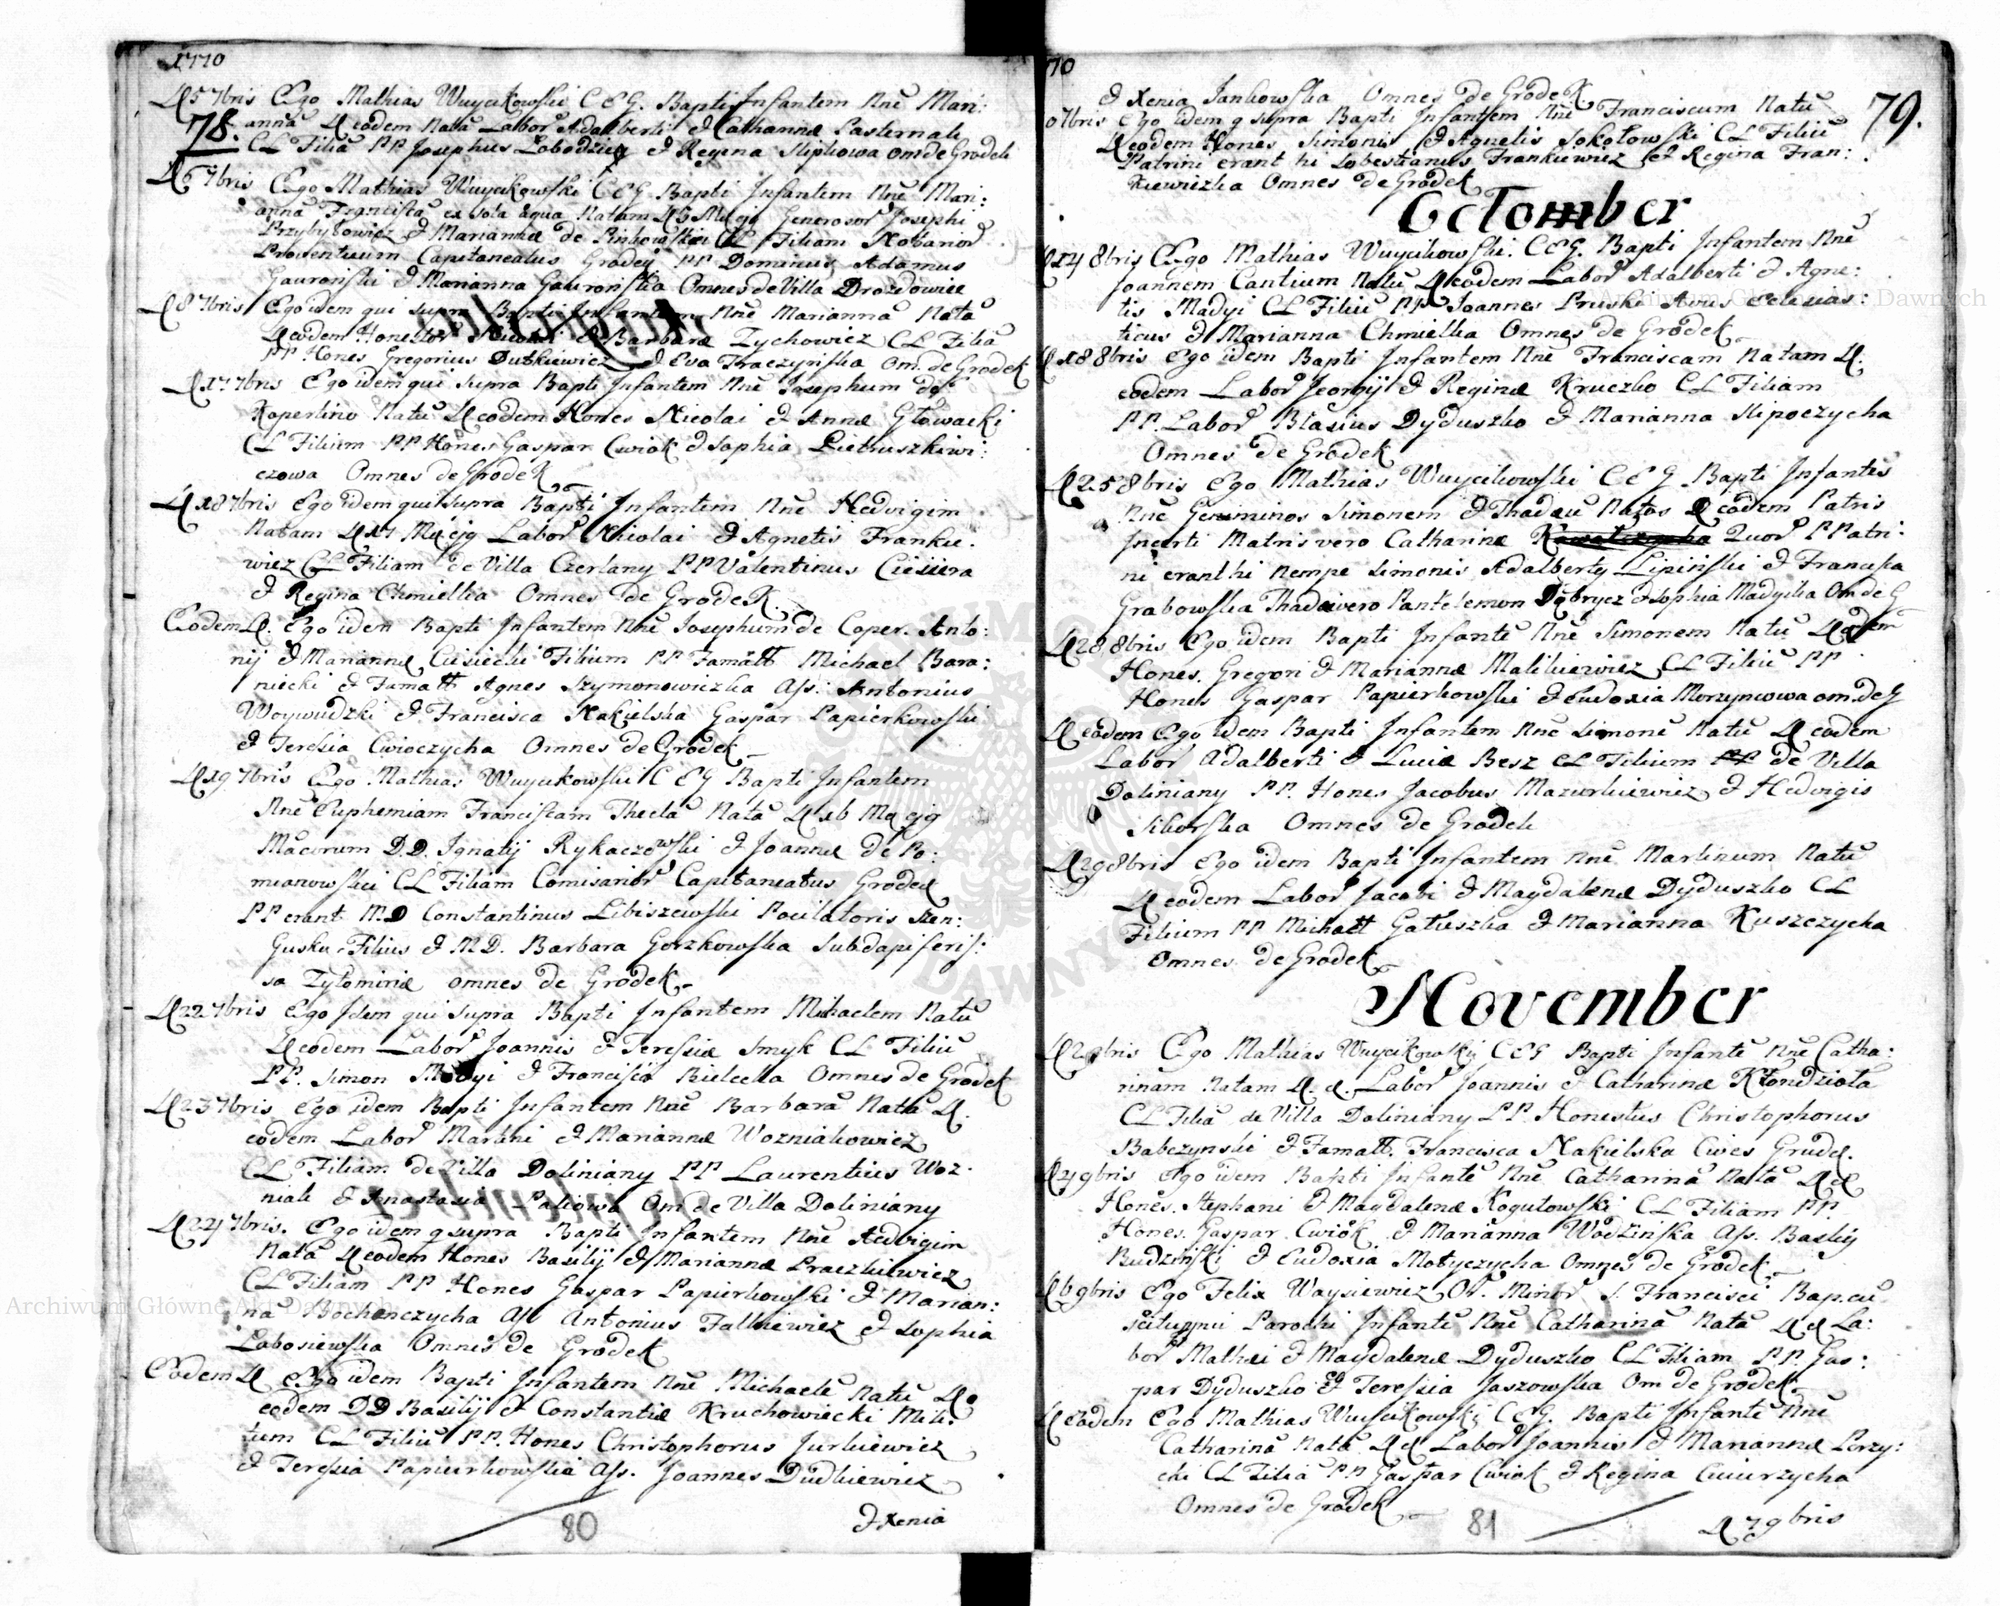 1770
78.
D 5 7bris Ego Mathias Wuycikowski C E G. Bapti Infantem Nne Mari:
anna D eodem Nata Labor Adalberti & Catharinæ Pasternak
CL Filia PP Josephus Lobodziec & Regina Slipkowa Om de Grodek
D 6 7bris Ego Mathias Wuycikowski C E G Bapti Infantem Nne Mari:
anna Francisca ex sola aqua Natam
Przybyłowicz & Mariannæ de Pinkowskie CL Filiam
Proventuum Capitaneatus Grodec PP Dominus Adamus
Gauroński & Marianna Gaurońska Omnes de Villa Drozdowice
D 8 7bris Ego idem qui supra Bapti Infantem Nne Marianna Nata
D eodem Honestor Nicolai & Barbaræ Zychowicz CL Filia
PP Hones Gregorius Dutkiewicz & Eva Traczyńska Om. de Grodek
D 17 7bris Ego idem qui supra Bapti Infantem Nne Josephum de
Kopertino Natu D eodem Hones Nicolai & Annæ Głowacki
CL Filium PP Hones Gaspar Cwiok & Sophia Pietruszkiwi:
czowa Omnes de Grodek
D 18 7bris Ego idem qui supra Bapti Infantem Nne Hedvigim
Natam D 17 M. ejq Labor Nicolai & Agnetis Frankie:
wicz CL Filiam de Villa Czerlany PP Valentinus Ciesiera
& Regina Chmielka Omnes de Grodek
Eodem D. Ego idem Bapti Infantem Nne Josephum de Coper. Anto:
nij & Mariannæ Ciesiecki Filium PP Famatt Michael Bara:
niecki & Famatt Agnes Szymonowiczka Ass: Antonius
Woywudzki & Francisca Nakielska Gaspar Papierkowski
& Teresia Cwioczycha Omnes de Grodek
D 19 7bris Ego Mathias Wuycikowski C E G Bapti Infantem
Nne Euphemiam Franciscam Thecla Nata D 16 M ejq
Mcorum D.D. Ignatij Rykaczowski & Joannæ de Po:
mianowskie CL Filiam Comisarior Capitaneatus Grodec
PP erant M.D Constantinus Libiszewski Pocilatoris
Filius & M.D. Barbara Gorzkowska Subdapiferis:
sa Zytomiriæ omnes de Grodek
D 22 7bris Ego Idem qui Supra Bapti Infantem Michaelem Natu
D eodem Labor Joannis & Teressiæ Smyk CL Filiu
PP. Simon Madyi & Francisca Bielecka Omnes de Grodek
D 23 7bris Ego idem Bapti Infantem Nne Barbara Nata D.
eodem Labor Martini & Mariannæ Wozniakowicz
CL Filiam de Villa Doliniany PP Laurentius Woz:
niak & Anastasia Paliowa Om de Villa Doliniany
D 24 7bris. Ego idem q supra Bapti Infantem Nne Hedvigim
Nata D eodem Hones Basilij & Mariannæ Praczkiewicz
CL Filiam PP Hones Gaspar Papierkowski & Marian:
na Bochenczycha Ass Antonius Falkiewicz & Sophia
Labosiewska Omnes de Grodek
Eodem D Ego idem Bapti Infantem Nne Michaele Natu D
eodem DD Basilij & Constantiæ Kruchowiecki Mili:
tum CL Filiu PP. Hones Christophorus Jurkiewicz
& Teresia Papierkowska Ass. Joannes Dudkiewicz
& Xenia
80
70
79.
& Xenia Jankowska Omnes de Grodek
07bris Ego idem q supra Bapti Infantem Nne Franciscum Natu
D eodem Hones Simonis & Agnetis Sokołowski CL Filiu
Patrini erant hi Sobestianus Frankiewicz & Regina Fran:
kiewiczka Omnes de Grodek
OcTomber
D 14 8bris Ego Mathias Wuycikowski. C E G. Bapti Infantem Nne
Joannem Cantium Natu D eodem Labor Adalberti & Agne:
tis Madyi CL Filiu PP Joannes Pruski Avus Eclesias:
ticus & Marianna Chmielka Omnes de Grodek
D 18 8bris Ego idem Bapti Infantem Nne Franciscam Natam D.
eodem Labor Jeorgij & Reginæ Kruczko CL Filiam
PP. Labor Błasius Dyduszko & Marianna Slipoczycha
Omnes de Grodek
D 25 8bris Ego Mathias Wuycikowski C E G. Bapti Infantes
Nne Geniminos Simonem & Thadeu Natos D eodem Patris
Incerti Matris vero Catharinæ Quor PPatri:
ni erant hi Nempe Simonis Adalberty Lipiński & Francisca
Grabowska Thadei vero Pantelemon Dobrycz & Sophia Madycka Om de G
D 28 8bris Ego idem Bapti Infante Nne Simonem Natu D eodem
Hones. Gregori & Mariannæ Malikiewicz CL Filiu PP
Hones Gaspar Papierkowski & Eudoxia Morzyncowa om. de G
D eodem Ego idem Bapti Infantem Nne Simone Natu D eodem
Labor Adalberti & Luciæ Besz CL Filium de Villa
Doliniany PP. Hones Jacobus Mazurkiewicz & Hedvigis
Siborska Omnes de Grodek
D 29 8bris Ego idem Bapti Infantem Nne Martinum Natu
D eodem Labor Jacobi & Magdalenæ Dyduszko CL
Filium PP Michaël Gałuszka & Marianna Kuszczycha
Omnes de Grodek
November
D 2 9bris Ego Mathias Wuycikowski C E G Bapti Infante Nne Catha:
rinam Natam D. e. Labor Joannis & Catharinæ Kłondzioła
CL Filia de Villa Doliniany PP. Honestus Christophorus
Babczynski & Famatt. Francisca Nakielska Cives Grude.
D 4 9bris Ego idem Bapti Infante Nne Catharina Nata D e
Hones. Stephani & Magdalenæ Kogutowski CL Filiam PP.
Hones. Gaspar Cwiok & Marianna Wodzińska Ass. Basilij
Budziński & Eudoxia Motyczycha Omnes de Grodek
D 6 9bris Ego Felix Waysiewicz Or. Minor S. Francisci Bap. cu
scitu Parochi Infante Nne Catharina Nata D e La:
bor Mathei & Magdalenæ Dyduszko CL Filiam PP. Gas:
par Dyduszko & Teressia Jaszowska Om de Grodek
D eodem Ego Mathias Wuycikowski C E G. Bapti Infante Nne
Catharina Nata D e Labor Joannis & Mariannæ Porzy:
cki CL Filia PP Gaspar Cwiok & Regina Cwierzycha
Omnes de Grodek
81
D 7 9bris
Archiwum Główne Akt Dawnych